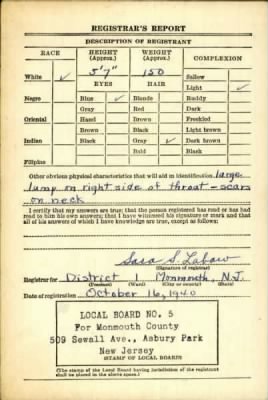 REGISTRAR'S REPORT
DESCRIPTION OF REGISTRANT
RACE HEIGHT (Approx.) WEIGHT (Approx.) COMPLEXION
5'7" 150 Sallow
White ✓ EYES HAIR Light ✓
Negro Blue ✓ Blonde Ruddy
Gray Red Dark
Oriental Hazel Brown Freckled
Brown Black Light brown
Indian Black Gray ✓ Dark brown
Bald Black
Filipino
Other obvious physical characteristics that will aid in identification large
lump on right side of throat - scars
on neck
I certify that my answers are true; that the person registered has read or has had
read to him his own answers; that I have witnessed his signature or mark and that
all of his answers of which I have knowledge are true, except as follows:
Sara S. Labaw
(Signature of registrar)
Registrar for District 1 Monmouth, N.J.
(Precinct) (Ward) (City or county) (State)
Date of registration October 16, 1940
LOCAL BOARD NO. 5
For Monmouth County
509 Sewall Ave., Asbury Park
New Jersey
(STAMP OF LOCAL BOARD)
(The stamp of the Local Board having jurisdiction of the registrant
shall be placed in the above space.)